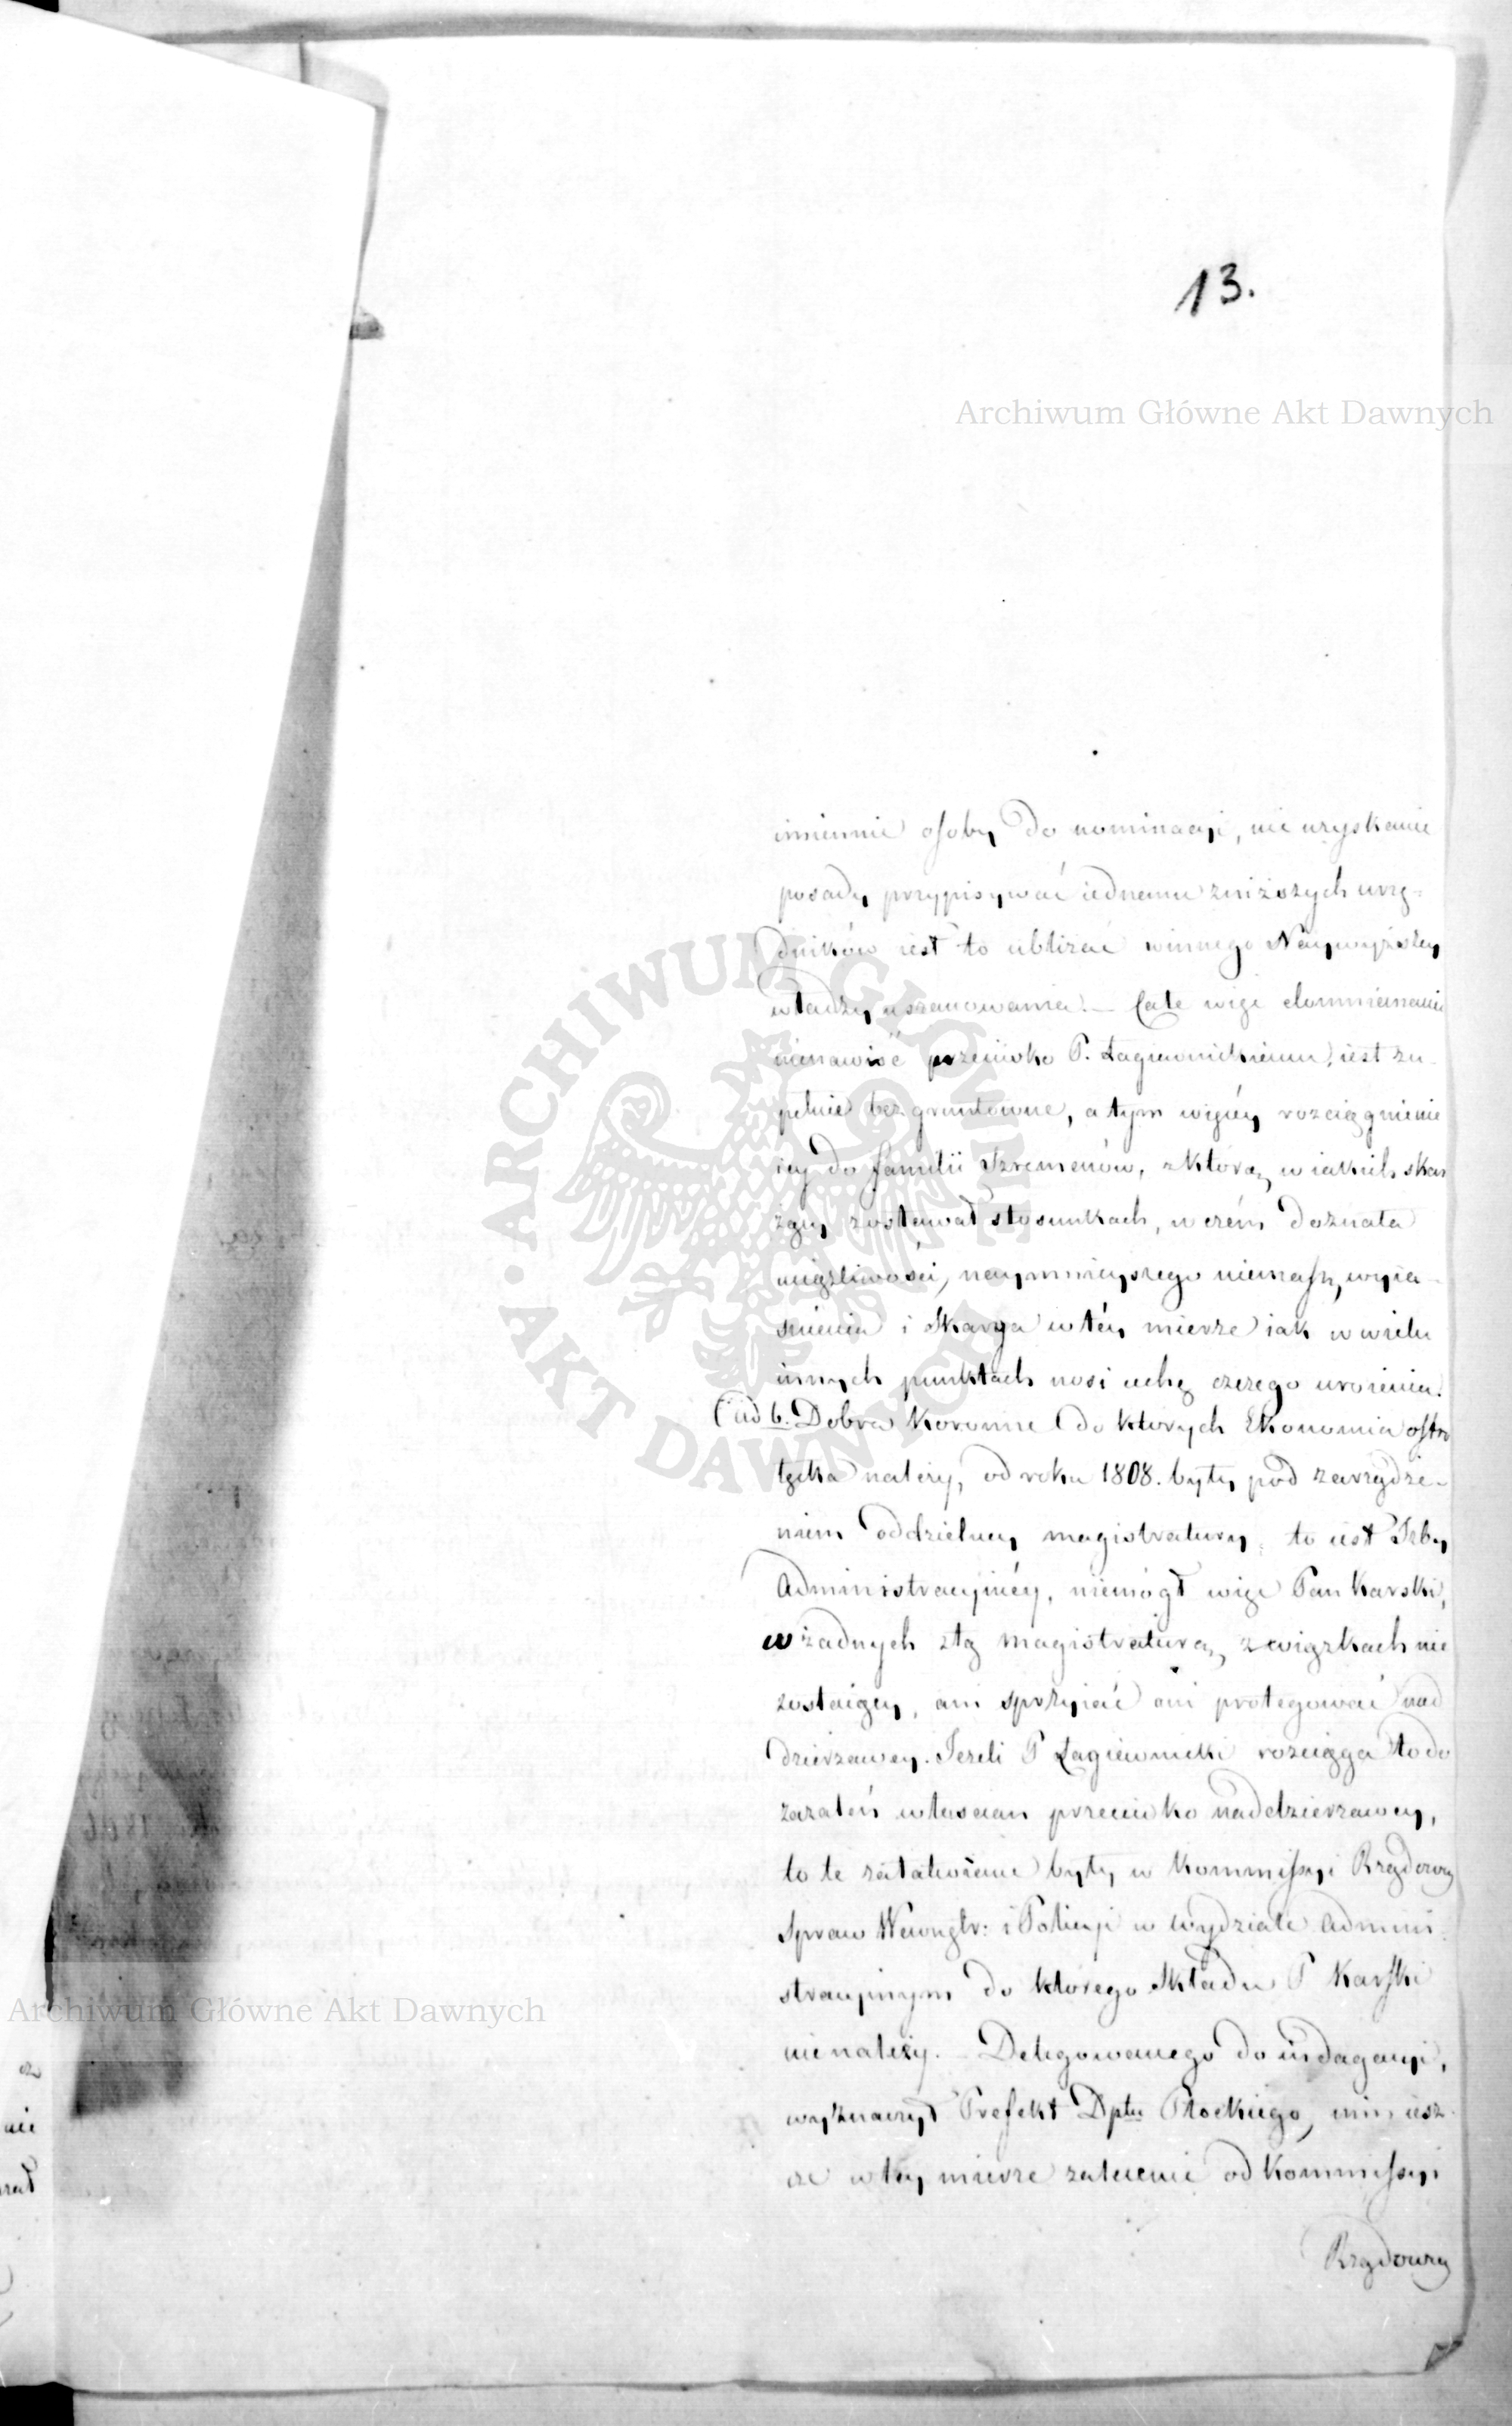 13.
Archiwum Główne Akt Dawnych
imiennie osoby do nominacyi, nie uzyskanie
posady przypisywać iednemu zniższych urzę=
dników iest to ubliżać winnego Naywyższey
władzy uszanowania. — Całe więc domniemanie
nienawiść przeciwko P. Łagiewnickiemu, iest zu-
pełnie bezgruntowne, a tym więcey rozciągnienie
iey do familii Szremenów, zktórą w iakich skar
żący zostawał stosunkach, w czém doznała
uciążliwości, naymnieyszego niemasz wyia-
śnienia i Skarga wtéy mierze iak w wielu
innych punktach nosi cechę czczego uroienia.
ad 6. Dobra Koronne do ktorych Ekonomia ostro
łęcka należy, od roku 1808. były pod zarządze-
niem oddzielney magistratury, to iest Izby
Administracyinéy, niemógł więc Pan Karski,
w żadnych ztą magistraturą związkach nie
zostaiący, ani sprzyiać ani protegować nad
dzierzawcy. Jeżeli P Łagiewnicki rozciąga to do
zażaleń włoscian przeciwko naddzierzawcy,
to te załatwione były w Kommissyi Rządowey
Spraw Wewnętr: i Policyi w Wydziale Admini
stracyinym do którego Składu P Karski
nie należy. — Delegowanego do indagacyi,
wyznaczył Prefekt Dptu Płockiego, nim iesz
cze w tey mierze zalecenie od Kommissyi
Rządowey
ARCHIWUM GŁÓWNE
AKT DAWNYCH
Archiwum Główne Akt Dawnych